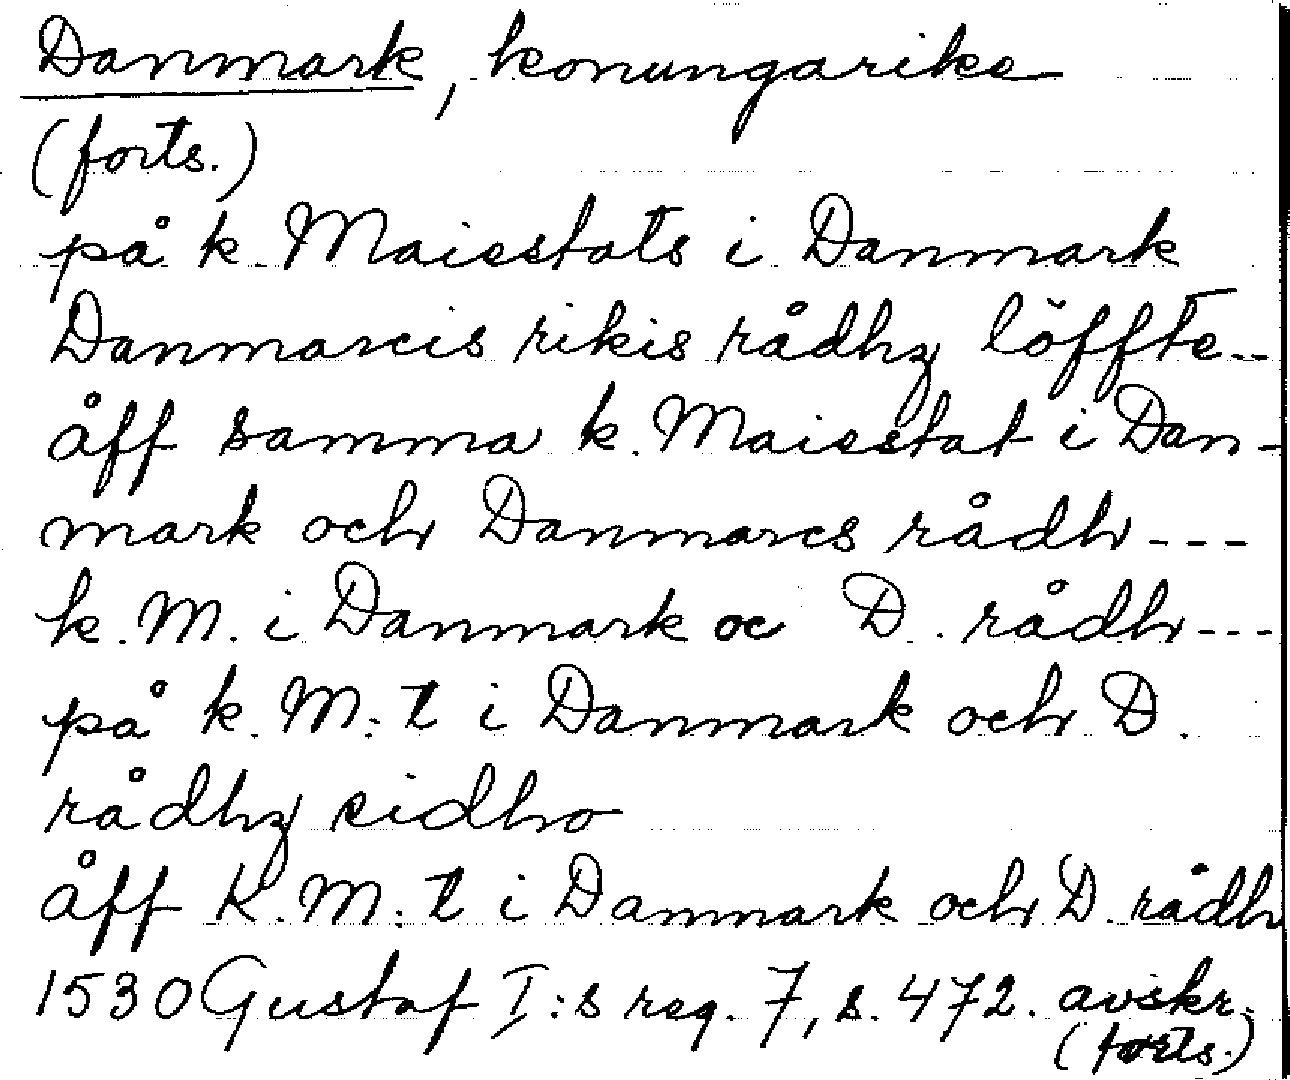 Danmark, konungarike
(forts.)
på k. Maiestats i Danmark
Danmarcis rikis rådhz löffte...
åff samma k. Maiestat i Dan-
mark och Danmarcs rådh ---
k. M. i Danmark oc D. rådh ---
på k. M:t i Danmark och D.
rådhz sidho
åff K. M:t i Danmark och D. rådh
1530 Gustaf I:s reg. 7, s. 472. avskr.
(forts.)